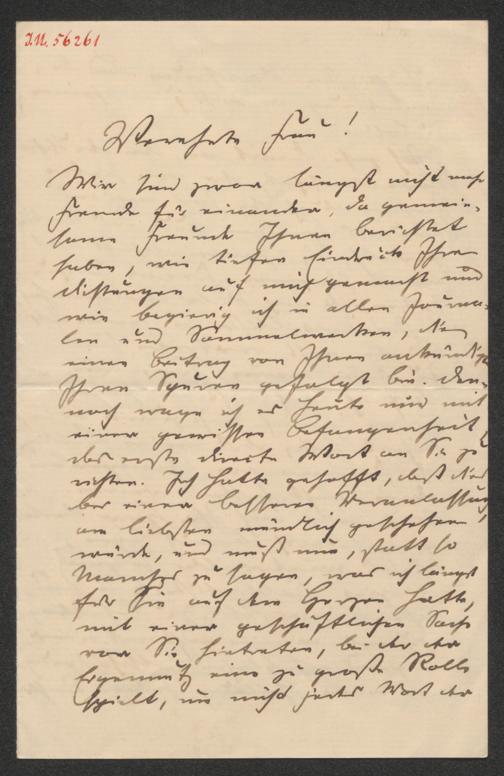 I.N. 56261
Verehrte Frau!
Wir sind zwar längst nicht mehr
Fremde für einander, da gemein-
same Freunde Ihnen berichtet
haben, wie tiefen Eindruck Ihre
Dichtungen auf mich gemacht und
wie begierig ich in allen Journa-
len und Sammelwerken, die
einen Beitrag von Ihnen ankündigen
Ihren Spuren gefolgt bin. Den-
noch wage ich es heute nur mit
einer gewissen Befangenheit,
das erste directe Wort an Sie zu
richten. Ich hatte gehofft, daß dies
bei einer besseren Veranlassung,
am liebsten mündlich geschehen
würde, und muß nun, statt so
Manches zu sagen, was ich längst
für Sie auf dem Herzen hatte,
mit einer geschäftlichen Sache
vor Sie hintreten, bei der der
Eigennutz eine zu große Rolle
spielt, um nicht jedes Wort der